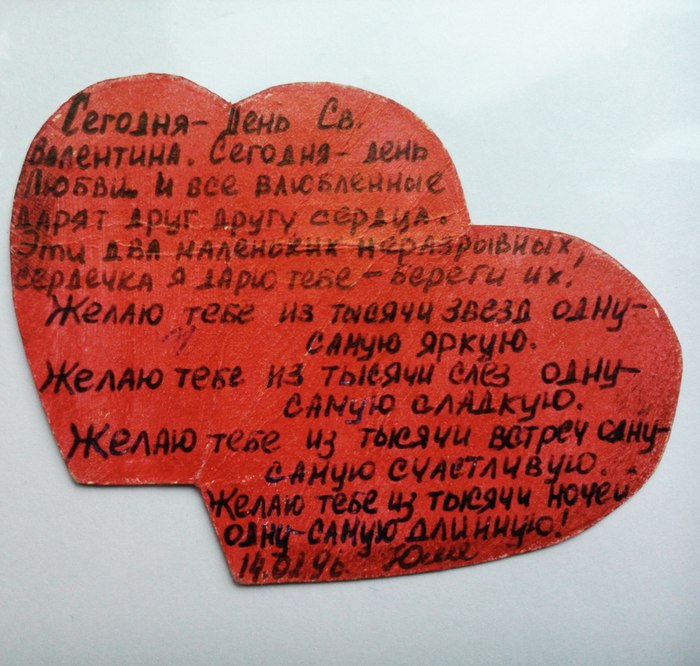 Сегодня - день Св.
Валентина. Сегодня - день
Любви. И все влюбленные
дарят друг другу сердца.
Эти два маленьких неразрывных,
сердечка я дарю тебе - береги их.
Желаю тебе из тысячи звезд одну-
самую яркую.
Желаю тебе из тысячи слез одну-
самую сладкую.
Желаю тебе из тысячи встреч одну-
самую счастливую.
Желаю тебе из тысячи ночей
одну-самую длинную!
14.02.96.